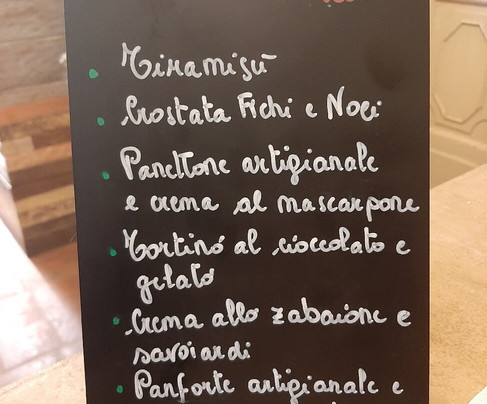 Tiramisù
Crostata Fichi e Noci
Panettone artigianale
e crema al mascarpone
Tortino al cioccolato e
gelato
Crema allo zabaione e
savoiardi
Panforte artigianale e